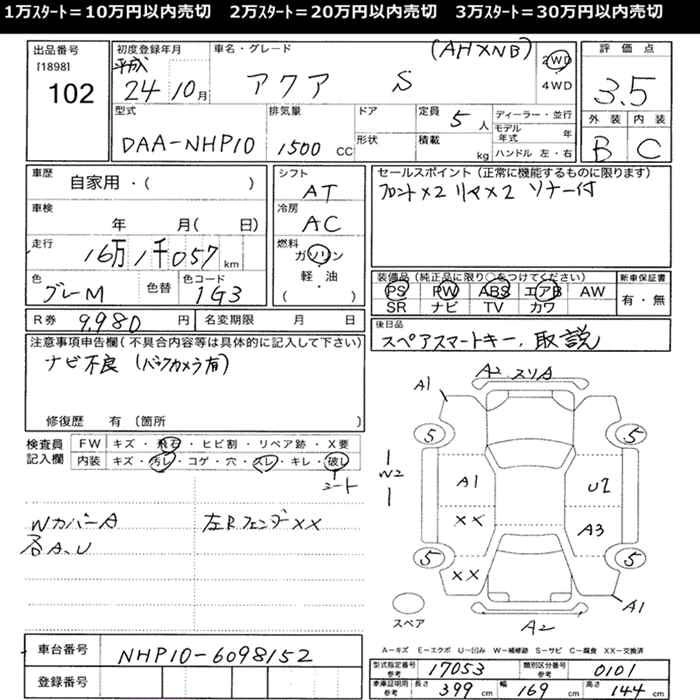 1万スタート=10万円以内売切 2万スタート=20万円以内売切 3万スタート=30万円以内売切
出品番号
[1898]
102
初度登録年月
平成
24 10月
車名・グレード
(AHXNB)
アクア S
2WD
4WD
評価点
3.5
外装 内装
B C
型式
DAA-NHP10
排気量
1500 CC
ドア
形状
定員 5人
積載 kg
ディーラー・並行
モデル年式 年
ハンドル 左・右
車歴
自家用・( )
車検
年 月( 日)
走行
16万1千057 km
色
グレーM
色替
色コード
1G3
シフト
AT
冷房
AC
燃料
ガソリン
軽・油
( )
セールスポイント(正常に機能するものに限ります)
フロント×2 リヤ×2 ソナー付
装備品(純正品に限り○をつけてください)
PS PW ABS エアB AW
SR ナビ TV カワ
新車保証書
有・無
R券 9,980 円
名変期限 月 日
後日品
スペアスマートキー、取説
注意事項申告欄(不具合内容等は具体的に記入して下さい)
ナビ不良(バックカメラ有)
修復歴 有(箇所
検査員
記入欄
FW キズ・飛石・ヒビ割・リペア跡・X要
内装 キズ・汚レ・コゲ・穴・スレ・キレ・破レ
シート
WカバーA
各A、U
左Rフェンダー××
A2 スリA
A1
5
5
W2
A1
U2
××
A3
5
5
××
A1
A2
スペア
A-キズ E-エクボ U-凹み W-補修跡 S-サビ C-腐食 XX-交換済
車台番号
NHP10-6098152
登録番号
型式指定番号
参考
17053
類別区分番号
参考
0101
車庫証明用
参考
長さ 399 cm
幅 169 cm
高さ 144 cm